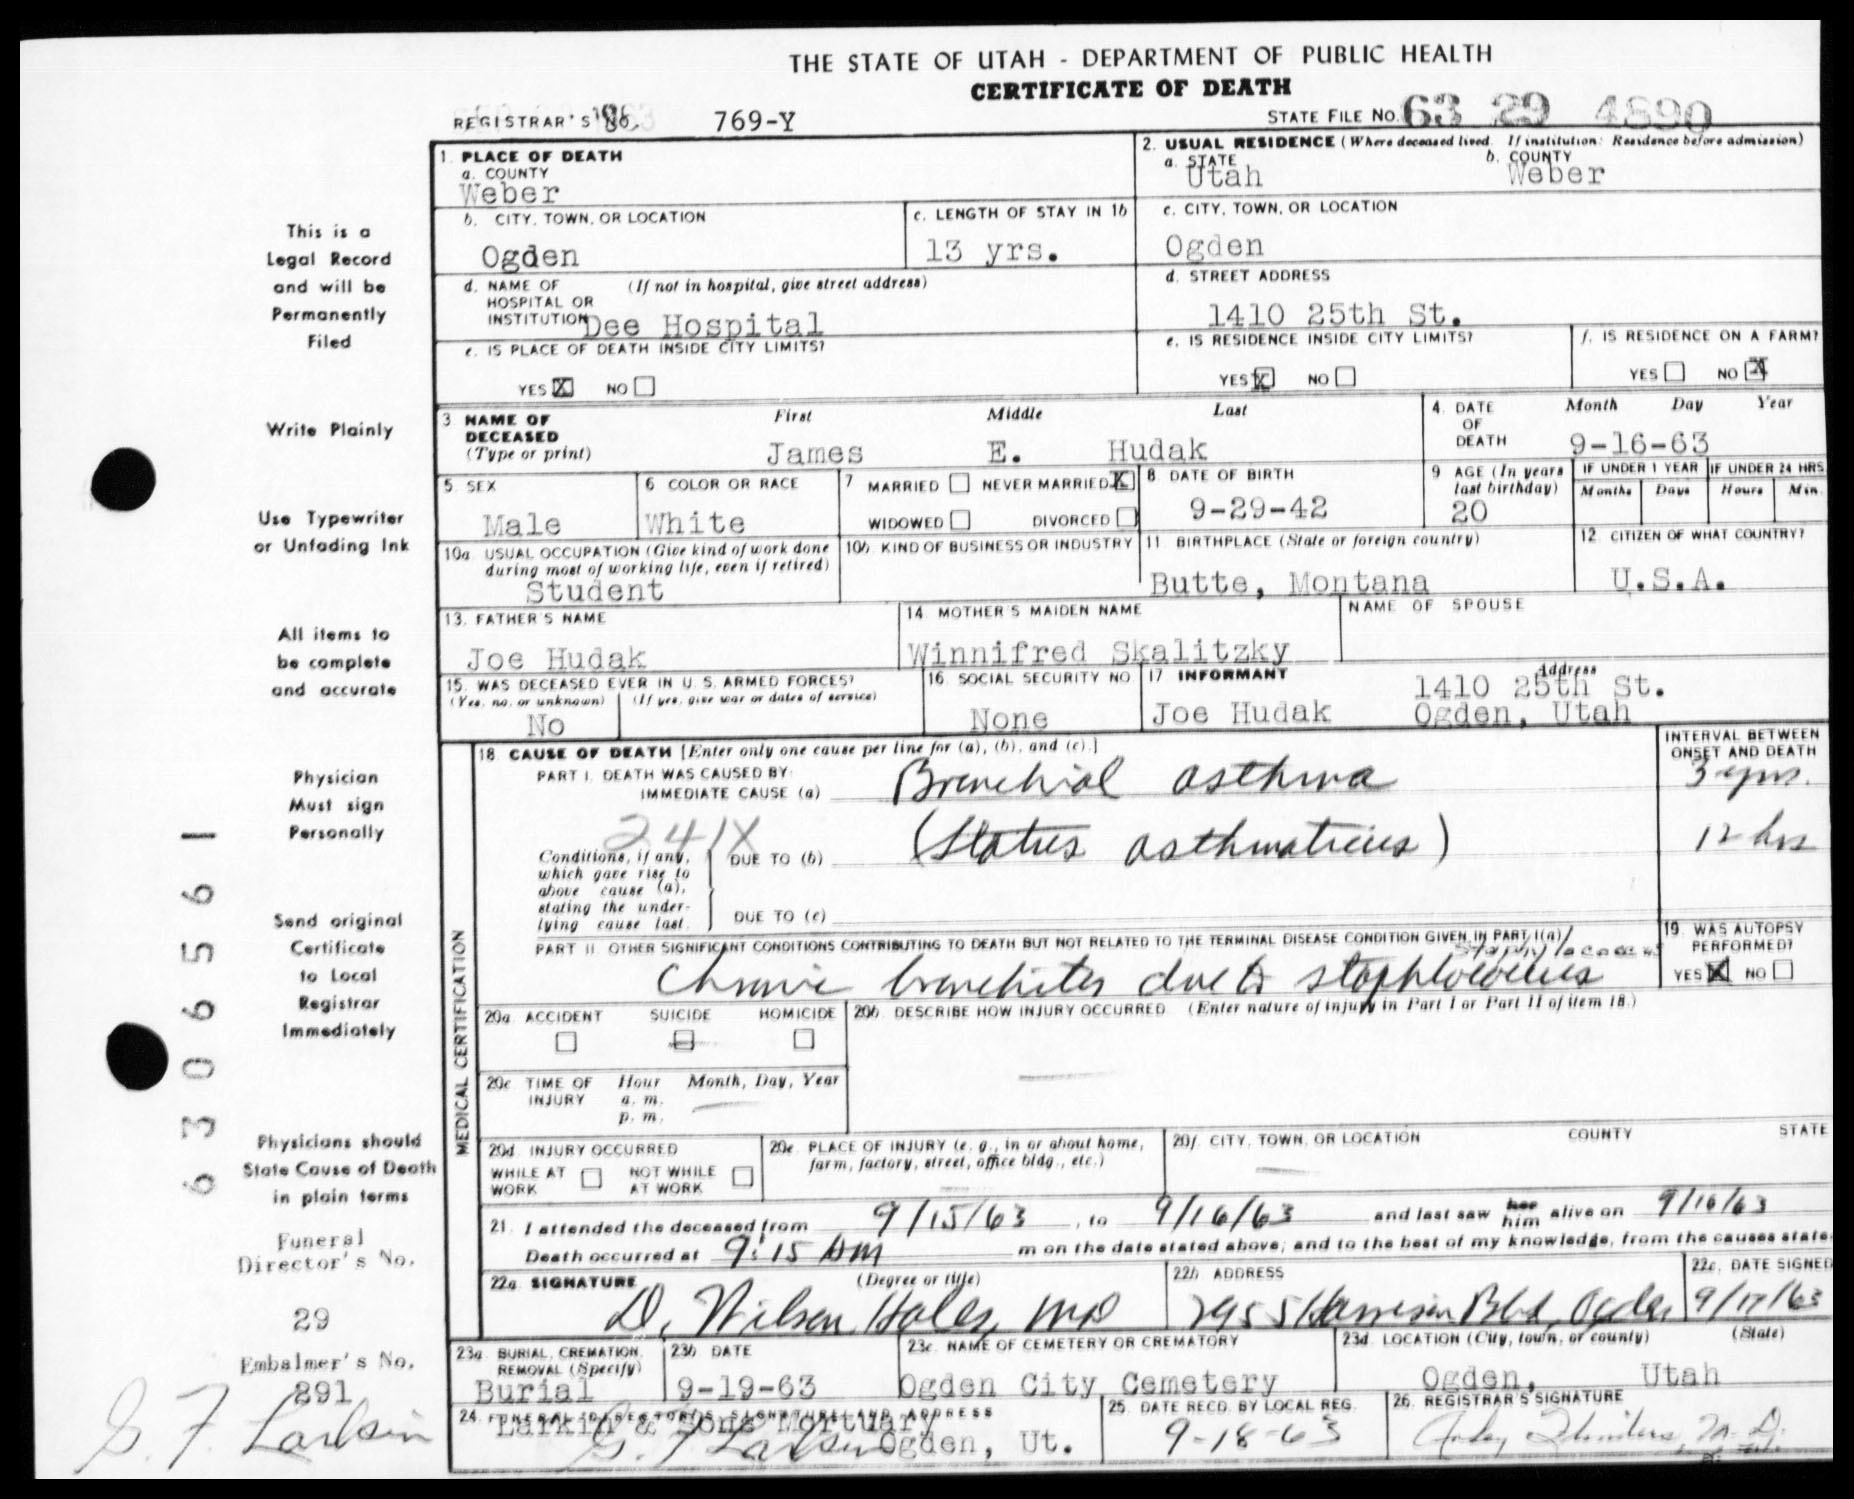 THE STATE OF UTAH - DEPARTMENT OF PUBLIC HEALTH
CERTIFICATE OF DEATH
REGISTRAR'S No. 769-Y
STATE FILE No. 63 29 4890
This is a
Legal Record
and will be
Permanently
Filed
Write Plainly
Use Typewriter
or Unfading Ink
All items to
be complete
and accurate
Physician
Must sign
Personally
Send original
Certificate
to Local
Registrar
Immediately
Physicians should
State Cause of Death
in plain terms
Funeral
Director's No.
29
Embalmer's No.
291
G. F. Larkin
6 3 0 6 5 6 1
1. PLACE OF DEATH
a. COUNTY
Weber
2. USUAL RESIDENCE (Where deceased lived. If institution: Residence before admission)
a. STATE Utah b. COUNTY Weber
b. CITY, TOWN, OR LOCATION
Ogden
c. LENGTH OF STAY IN 1b
13 yrs.
c. CITY, TOWN, OR LOCATION
Ogden
d. NAME OF (If not in hospital, give street address)
HOSPITAL OR
INSTITUTION Dee Hospital
d. STREET ADDRESS
1410 25th St.
e. IS PLACE OF DEATH INSIDE CITY LIMITS?
YES X NO
e. IS RESIDENCE INSIDE CITY LIMITS?
YES X NO
f. IS RESIDENCE ON A FARM?
YES NO X
3 NAME OF DECEASED (Type or print)
First Middle Last
James E. Hudak
4. DATE OF DEATH Month Day Year
9-16-63
5. SEX
Male
6 COLOR OR RACE
White
7 MARRIED NEVER MARRIED X
WIDOWED DIVORCED
8 DATE OF BIRTH
9-29-42
9 AGE (In years last birthday)
20
IF UNDER 1 YEAR IF UNDER 24 HRS.
Months Days Hours Min.
10a USUAL OCCUPATION (Give kind of work done
during most of working life, even if retired)
Student
10b. KIND OF BUSINESS OR INDUSTRY
11. BIRTHPLACE (State or foreign country)
Butte, Montana
12. CITIZEN OF WHAT COUNTRY?
U.S.A.
13. FATHER'S NAME
Joe Hudak
14. MOTHER'S MAIDEN NAME
Winnifred Skalitzky
NAME OF SPOUSE
15. WAS DECEASED EVER IN U.S. ARMED FORCES?
(Yes, no, or unknown) (If yes, give war or dates of service)
No
16. SOCIAL SECURITY NO
None
17 INFORMANT Address
Joe Hudak 1410 25th St.
Ogden, Utah
MEDICAL CERTIFICATION
18 CAUSE OF DEATH [Enter only one cause per line for (a), (b), and (c).]
INTERVAL BETWEEN
ONSET AND DEATH
PART I. DEATH WAS CAUSED BY:
IMMEDIATE CAUSE (a) Bronchial asthma 3 yrs.
241X
Conditions, if any,
which gave rise to
above cause (a),
stating the under-
lying cause last.
DUE TO (b) (Status asthmaticus) 12 hrs
DUE TO (c)
PART II. OTHER SIGNIFICANT CONDITIONS CONTRIBUTING TO DEATH BUT NOT RELATED TO THE TERMINAL DISEASE CONDITION GIVEN IN PART I(a)
Staphylococcus
Chronic bronchitis due to staphlococcus
19. WAS AUTOPSY
PERFORMED?
YES X NO
20a. ACCIDENT SUICIDE HOMICIDE
20b. DESCRIBE HOW INJURY OCCURRED. (Enter nature of injury in Part I or Part II of item 18.)
20c TIME OF INJURY Hour Month, Day, Year
a. m.
p. m.
20d. INJURY OCCURRED
WHILE AT WORK NOT WHILE AT WORK
20e. PLACE OF INJURY (e. g., in or about home,
farm, factory, street, office bldg., etc.)
20f. CITY, TOWN, OR LOCATION COUNTY STATE
21. I attended the deceased from 9/15/63, to 9/16/63 and last saw her him alive on 9/16/63
Death occurred at 9:15 Am m on the date stated above; and to the best of my knowledge, from the causes state
22a. SIGNATURE (Degree or title)
D. Wilson Hales, MD
22b ADDRESS
2955 Harrison Blvd, Ogden
22c. DATE SIGNED
9/17/63
23a. BURIAL, CREMATION,
REMOVAL (Specify)
Burial
23b DATE
9-19-63
23c. NAME OF CEMETERY OR CREMATORY
Ogden City Cemetery
23d. LOCATION (City, town, or county) (State)
Ogden, Utah
24. FUNERAL DIRECTOR'S SIGNATURE AND ADDRESS
Larkin & Sons Mortuary
G F Larkin Ogden, Ut.
25. DATE RECD. BY LOCAL REG.
9-18-63
26. REGISTRAR'S SIGNATURE
M. D.